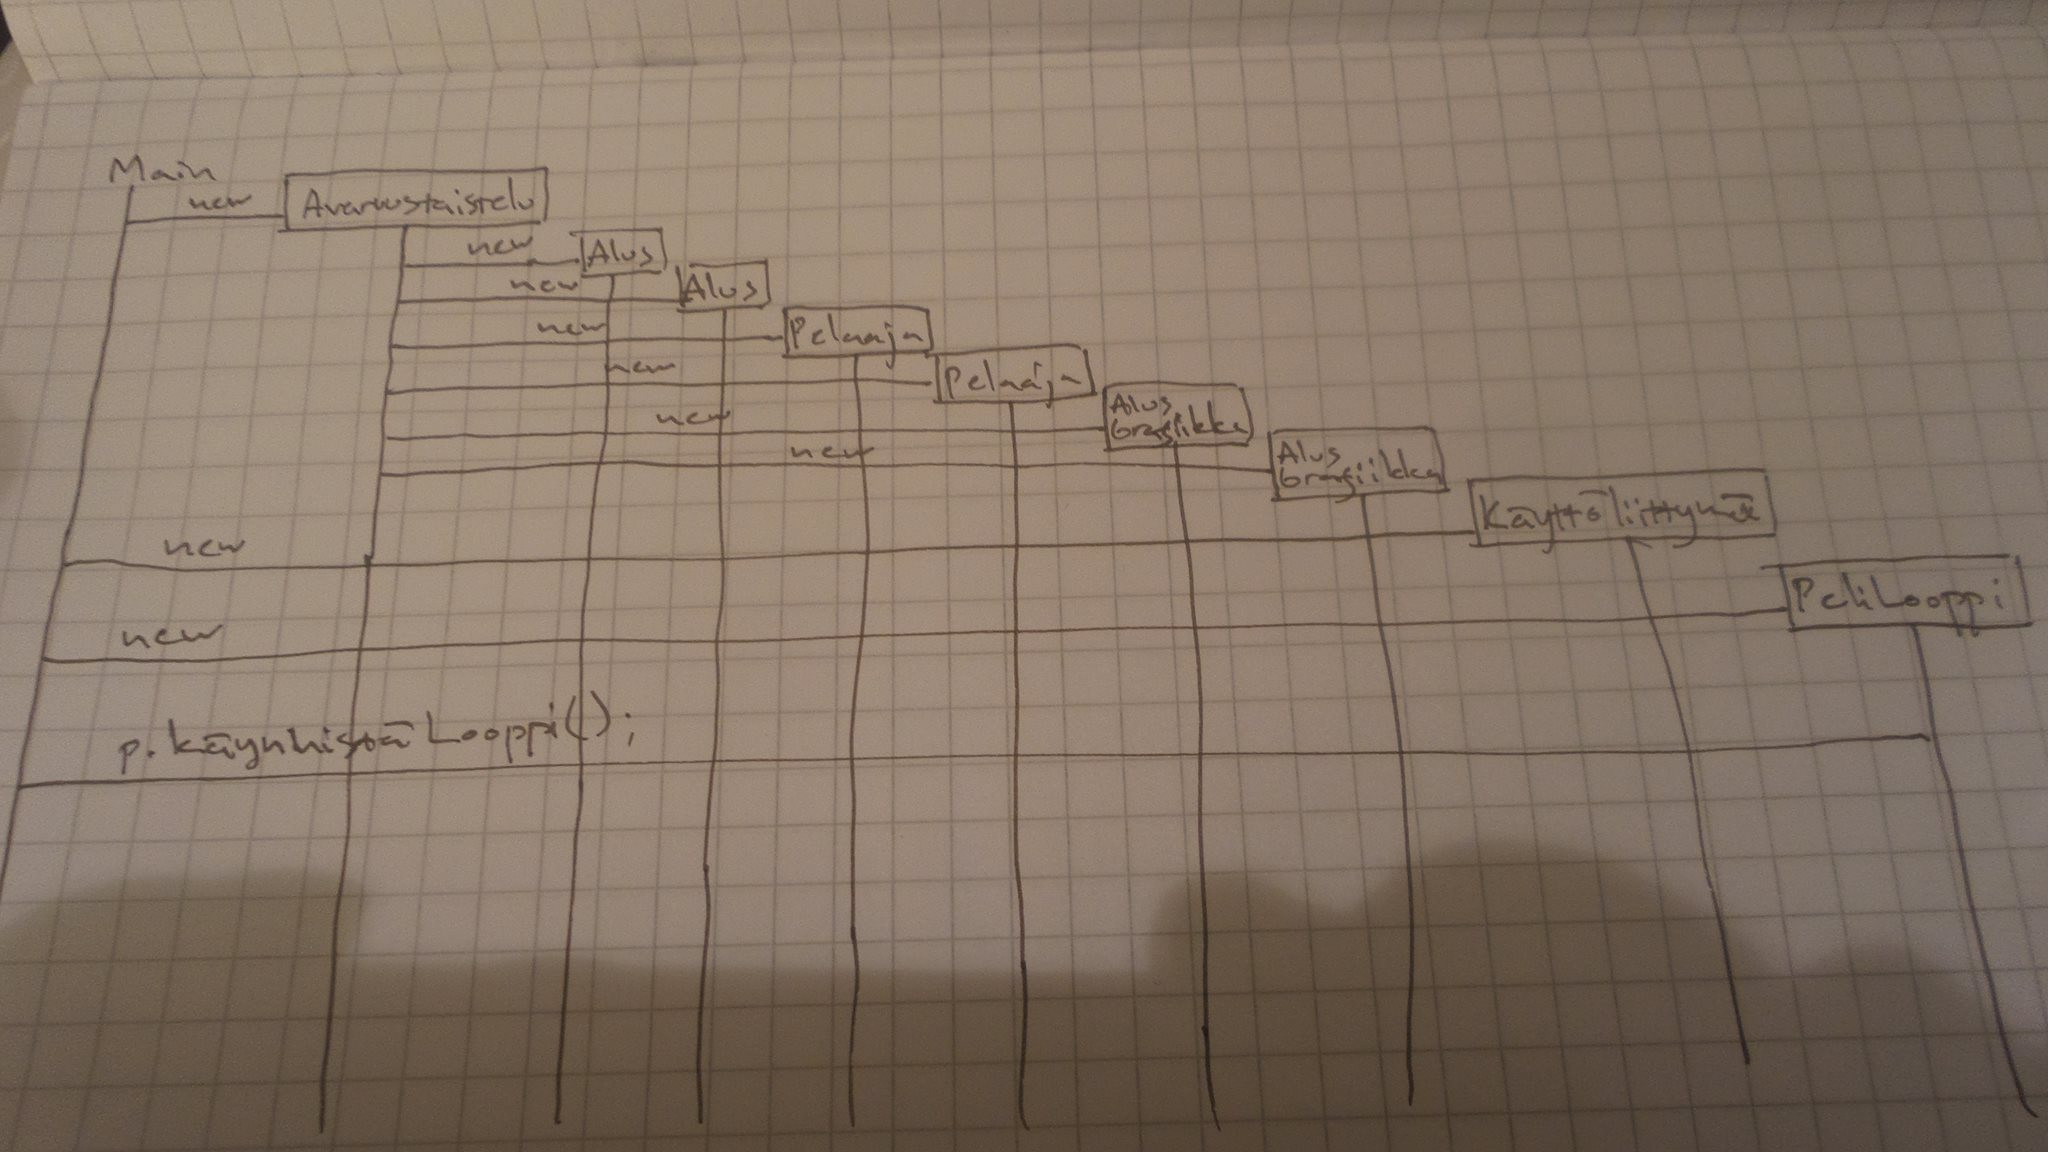 Main
new
Avaruustaistelu
new
Alus
new
Alus
new
Pelaaja
new
Pelaaja
new
Alus
Grafiikka
new
Alus
Grafiikka
new
Käyttöliittymä
new
PeliLooppi
p.käynnistäLooppi();